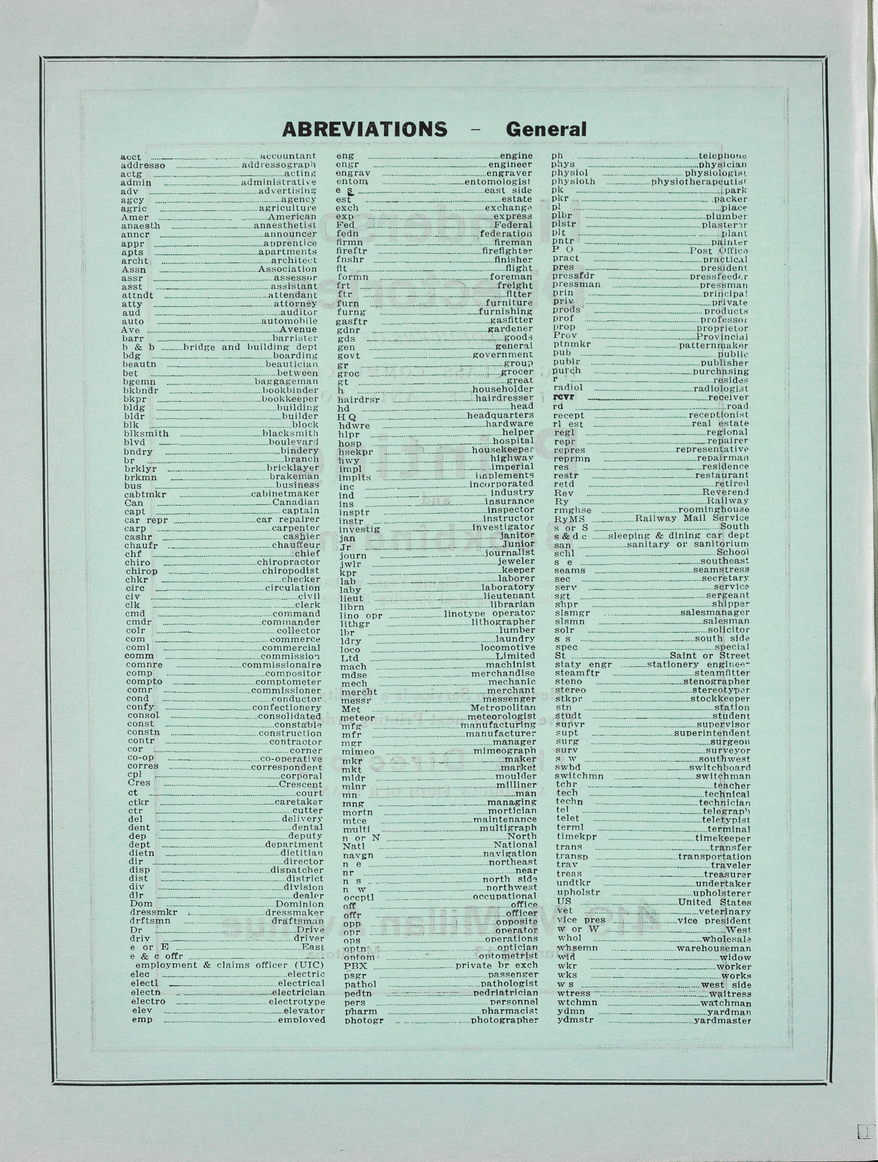 ABREVIATIONS - General
acct accountant
addresso addressograph
actg acting
admin administrative
adv advertising
agcy agency
agric agriculture
Amer American
anaesth anaesthetist
anncr announcer
appr apprentice
apts apartments
archt architect
Assn Association
assr assessor
asst assistant
attndt attendant
atty attorney
aud auditor
auto automobile
Ave Avenue
barr barrister
b & b bridge and building dept
bdg boarding
beautn beautician
bet between
bgemn baggageman
bkbndr bookbinder
bkpr bookkeeper
bldg building
bldr builder
blk block
blksmith blacksmith
blvd boulevard
bndry bindery
br branch
brklyr bricklayer
brkmn brakeman
bus business
cabtmkr cabinetmaker
Can Canadian
capt captain
car repr car repairer
carp carpenter
cashr cashier
chaufr chauffeur
chf chief
chiro chiropractor
chirop chiropodist
chkr checker
circ circulation
civ civil
clk clerk
cmd command
cmdr commander
colr collector
com commerce
coml commercial
comm commission
comnre commissionaire
comp compositor
compto comptometer
comr commissioner
cond conductor
confy confectionery
consol consolidated
const constable
constn construction
contr contractor
cor corner
co-op co-operative
corres correspondent
cpl corporal
Cres Crescent
ct court
ctkr caretaker
ctr cutter
del delivery
dent dental
dep deputy
dept department
dietn dietitian
dir director
disp dispatcher
dist district
div division
dlr dealer
Dom Dominion
dressmkr dressmaker
drftsmn draftsman
Dr Drive
driv driver
e or E East
e & c offr
employment & claims officer (UIC)
elec electric
electl electrical
electn electrician
electro electrotype
elev elevator
emp employed
eng engine
engr engineer
engrav engraver
entom entomologist
e s east side
est estate
exch exchange
exp express
Fed Federal
fedn federation
firmn fireman
fireftr firefighter
fnshr finisher
flt flight
formn foreman
frt freight
ftr fitter
furn furniture
furng furnishing
gasftr gasfitter
gdnr gardener
gds goods
gen general
govt government
gr group
groc grocer
gt great
h householder
hairdrsr hairdresser
hd head
H Q headquarters
hdwre hardware
hlpr helper
hosp hospital
hsekpr housekeeper
hwy highway
impl imperial
implts implements
inc incorporated
ind industry
ins insurance
insptr inspector
instr instructor
investig investigator
jan janitor
Jr Junior
journ journalist
jwlr jeweler
kpr keeper
lab laborer
laby laboratory
lieut lieutenant
librn librarian
lino opr linotype operator
lithgr lithographer
lbr lumber
ldry laundry
loco locomotive
Ltd Limited
mach machinist
mdse merchandise
mech mechanic
mercht merchant
messr messenger
Met Metropolitan
meteor meteorologist
mfg manufacturing
mfr manufacturer
mgr manager
mimeo mimeograph
mkr maker
mkt market
mldr moulder
mlnr milliner
mn man
mng managing
mortn mortician
mtce maintenance
multi multigraph
n or N North
Natl National
navgn navigation
n e northeast
nr near
n s north side
n w northwest
occptl occupational
off office
offr officer
opp opposite
opr operator
ops operations
optn optician
ontom optometrist
PBX private br exch
psgr passenger
pathol pathologist
pedtn pedriatrician
pers personnel
pharm pharmacist
photogr photographer
ph telephone
phys physician
physiol physiologist
physioth physiotherapeutist
pk park
pkr packer
pl place
plbr plumber
plstr plasterer
plt plant
pntr painter
P O Post Office
pract practical
pres president
pressfdr pressfeeder
pressman pressman
prin principal
priv private
prods products
prof professor
prop proprietor
Prov Provincial
ptnmkr patternmaker
pub public
publr publisher
purch purchasing
r resides
radiol radiologist
rcvr receiver
rd road
recept receptionist
rl est real estate
regl regional
repr repairer
repres representative
reprmn repairman
res residence
restr restaurant
retd retired
Rev Reverend
Ry Railway
rmghse roominghouse
RyMS Railway Mail Service
s or S South
s & d c sleeping & dining car dept
san sanitary or sanitorium
schl School
s e southeast
seams seamstress
sec secretary
serv service
sgt sergeant
shpr shipper
slsmgr salesmanager
slsmn salesman
solr solicitor
s s south side
spec special
St Saint or Street
staty engr stationery engineer
steamftr steamfitter
steno stenographer
stereo stereotyper
stkpr stockkeeper
stn station
studt student
supvr supervisor
supt superintendent
surg surgeon
surv surveyor
s w southwest
swbd switchboard
switchmn switchman
tchr teacher
tech technical
techn technician
tel telegraph
telet teletypist
terml terminal
timekpr timekeeper
trans transfer
transp transportation
trav traveler
treas treasurer
undtkr undertaker
upholstr upholsterer
US United States
vet veterinary
vice pres vice president
w or W West
whol wholesale
whsemn warehouseman
wid widow
wkr worker
wks works
w s west side
wtress waitress
wtchmn watchman
ydmn yardman
ydmstr yardmaster